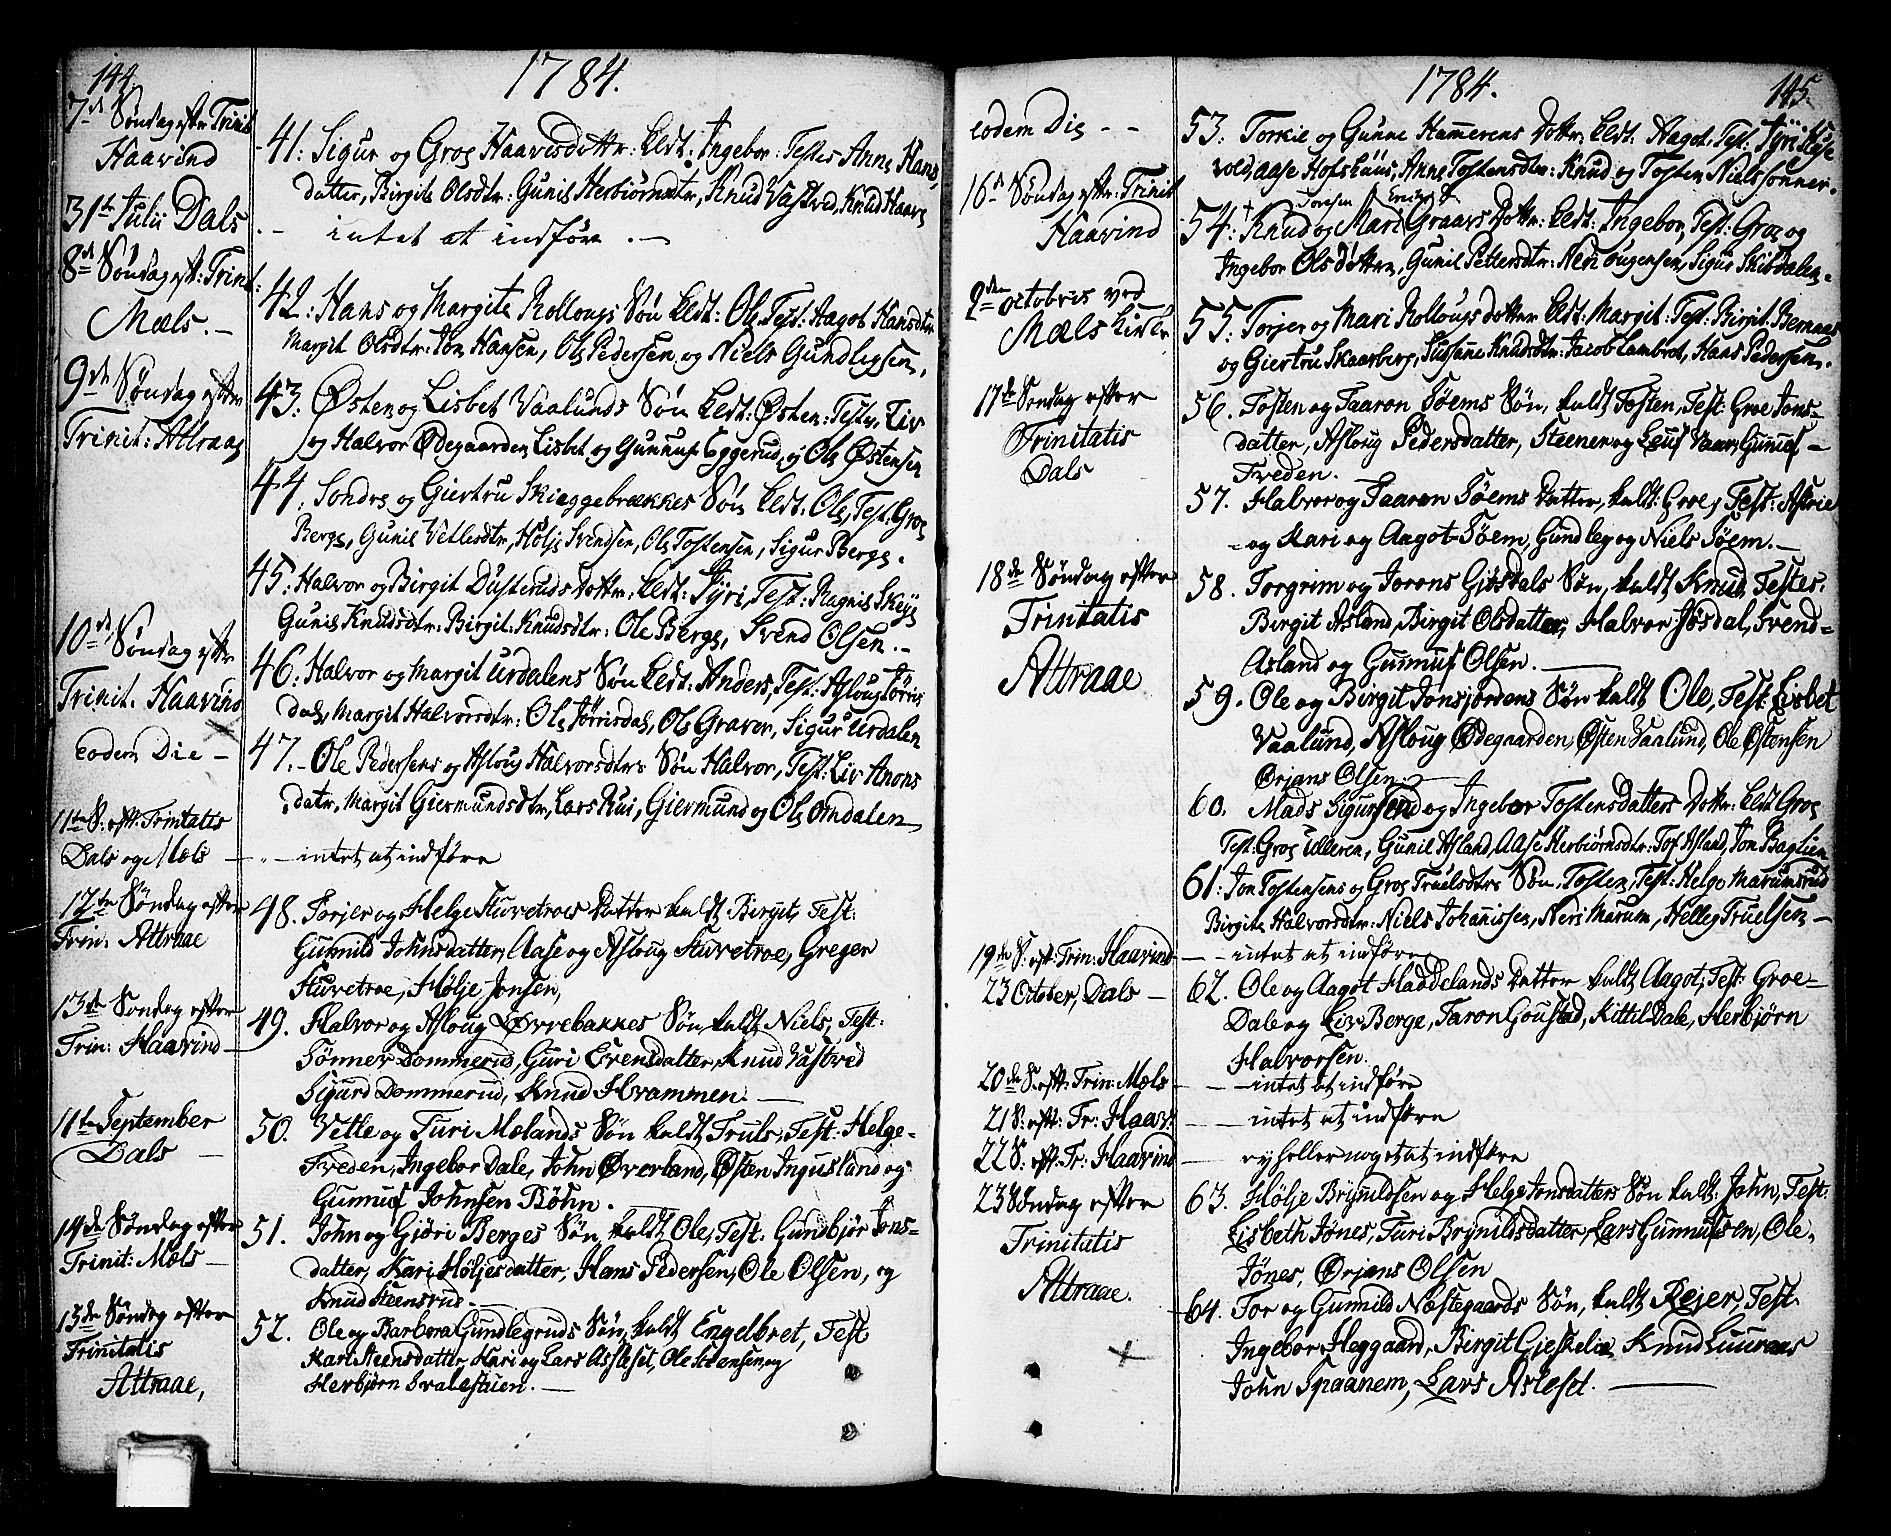 144.
1784.
7de Søndag eftr Trinit
Haavind
41. Sigur og Groe Haavisdottr: kldt: Ingebor: Testes Anne Hans
datter, Birgit Olsdtr: Gunil Herbiørnsdtr, Knud Vastved, Knud Haavs
31te Julii Dals
- intet at indføre. -
8de Søndag eft: Trinit:
Mæls. -
42: Hans og Margite Rollougs Søn kldt: Ole, Test: Aagot Hansdtr
Margit Olsdtr: Jon Hansen, Ole Pedersen og Niels Gundlegsen,
9de Søndag efter
Trinit: Attraae
43: Østen og Lisbet Vaalunds Søn kldt: Østen: Testes, Liv
og Halvor Ødegaarden, Lisbet og Gunnuf Eggerud, og Ole Østensen
44. Sondre og Giertru Skieggebrækkes Søn kldt: Ole, Test: Groe
Berge, Gunil Vetlesdtr, Høljе Svendsen, Ole Tostensen, Sigur Berge.
45: Halvor og Birgit Dusteruds Dottr: kldt: Tyri, Test: Ragnil Skeje
Gunil Knudsdtr: Birgit Knudsdtr: Ole Berge, Svend Olsen. -
10de Søndag eftr
Trinit. Haavind
46: Halvor og Margit Urdalens Søn kldt: Anders, Test: Asloug Jørris
dal, Margit Halvorsdtr: Ole Jørrisdal, Ole Graver, Sigur Urdalen
eodem Die -
47. - Ole Pedersens og Asloug Halvorsdtrs Søn Halvor, Test: Liv Anons
datr, Margit Giermundsdtr, Lars Rui, Giermund og Ole Omdalen
11te S: eft: Trinitatis
Dals og Mæls -
- intet at indføre
12te Søndag efter
Trin: Attraae
48. Torjer og Helge Stuvetroes Datter kaldt Birgit, Test:
Gunnild Johnsdatter, Aase og Asloug Stuvetroe, Greger
Stuvetroe, Hølje Jonsen,
13de Søndag efter
Trin: Haavind
49. Halvor og Asloug Lørrebakkes Søn kaldt Niels, Test:
Sønner Dommerud, Guri Evensdatter, Knud Vastved
Sigurd Dommerud, Knud Hvammen. -
11te September
Dals -
50. Vetle og Turi Mælands Søn kaldt Truls, Test: Helge-
Sveden, Ingebor Dale, John Øverland, Østen Ingusland og
Gunnuf Johnsen Bøhn.
14de Søndag efter
Trinit: Mæls -
51. John og Gjøri Berges Søn, kaldt Ole, Test: Gundbjør Jons-
datter, Kari Høljesdatter, Hans Pedersen, Ole Olsen, og
Knud Steensrud. -
13de Søndag efter
Trinitatis
Attraae,
52. Ole og Barbora Gundlegruds Søn, kaldt Engelbret, Test
Kari Steensdatter, Kari og Lars Asleset, Ole Steensen, og
Herbjørn Svalestuen. -
1784.
145.
eodem Die - -
53. Torkil og Gunne Hammerens Dottr: kldt: Aagot, Test: Tyri
vold, Aase Hofshuus, Anne Tostensdtr: Knud og Tosten Nielssønner.
16de Søndag eftr: Trinit
Haavind
54. + Knud og Mari Graars Dottr: kldt: Ingebor, Test: Groe og
Ingebor Olsdøttre, Gunil Pettersdtr: Neri Gungensen, Sigur Skibdalen.
2den Octobris ved
Mæls Kirke
55. Torjer og Mari Rollougs dotter kldt: Margit: Test: Birgit Bernaas
og Giertru Skaarberg, Susanne Knudsdtr: Jacob Lambret, Hans Pedersen.
17de Søndag efter
Trinitatis
Dals
56. Tosten og Taaron Søems Søn, kaldt Tosten, Test: Groe Jons-
datter, Asloug Pedersdatter, Steener og Leuf Vaar, Gunuf -
Sveden.
57. Halvor og Taaron Søems Datter, kaldt: Groe, Test: Astrie
- og Kari og Aagot Søem, Gundleg og Niels Søem. -
18de Søndag efter
Trinitatis
Attraae
58. Torgrim og Jorons Gjøsdals Søn, kaldt Knud, Testes:
Birgit Asland, Birgit Olsdatter, Halvor Jøsdal, Svend-
Asland og Gunnuf Olsen. -
59. Ole og Birgit Jonsjordens Søn kaldt Ole, Test: Lisbet
Vaalund, Asloug Ødegaarden, Østen Vaalund, Ole Østensen
Ørjans Olsen. -
60. Mads Sigursens og Ingebor Tostensdatters Dottr: kldt Groe
Test: Groe Ulleren, Gunil Asland, Aase Herbiørnsdtr: Tof Asland, Jon Baglien
61: Jon Tostensens og Groe Truelsdtrs Søn, Tosten, Test: Helge Marumsrud
Birgite Halvorsdtr: Niels Johannissen, Neri Marum, Helleg Truelsen -
19de S: eft: Trin: Haavind
- - intet at indføre
23 October, Dals -
62. Ole og Aagot Haddelands Datter kaldt Aagot, Test: Groe-
Dale og Liv Berge, Taron Goustad, Kittil Dale, Herbjørn
Halvorsen.
20de S: eft: Trin: Mæls -
- - intet at indføre
21 S: eft: Tr: Haavi:
- - intet at indføre
22 S: eft: Tr: Haavind
- ey heller noget at indføre
23 Søndag efter
Trinitatis
Attraae.
63. Hølje Brynildsen og Helge Jonsdatters Søn kaldt: John, Test:
Lisbeth Jønes, Turi Brynildsdatter, Lars Gunnufsen, Ole
Jönes, Ørjans Olsen
64. Tor og Gunnild Næstegaards Søn, kaldt Rejer, Test:
Ingebor Heggaard, Birgit Gieskelie, Knud Luuraas
John Spaanem, Lars Asleset. -